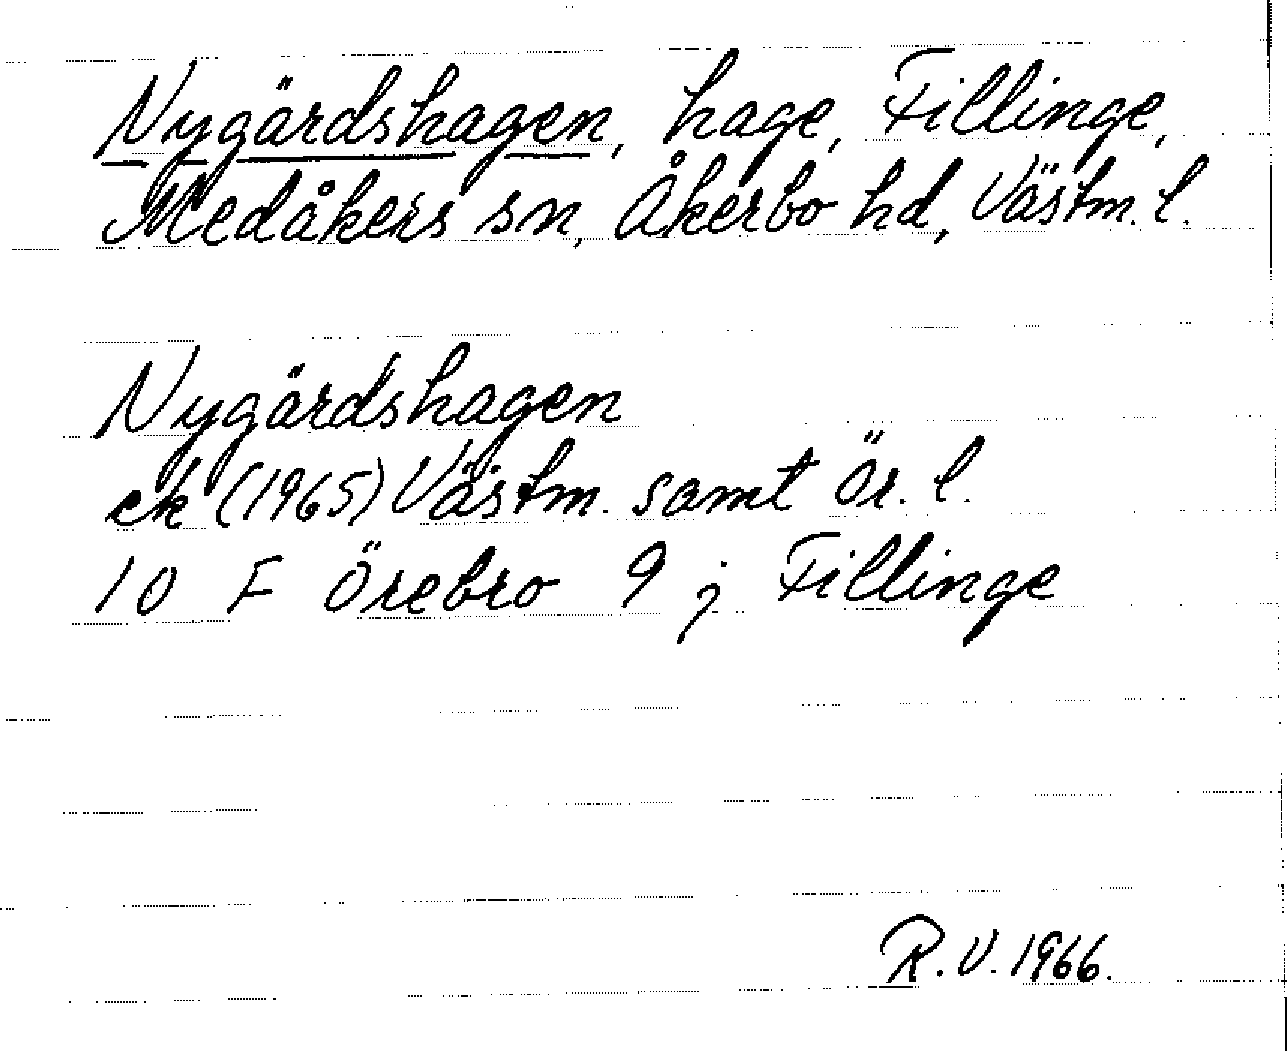 Nygårdshagen, hage, Fillinge,
Medåkers sn, Åkerbo hd, Västm. l.
Nygårdshagen
ek (1965) Västm. samt Ör. l.
10 F Örebro 9 j Fillinge
R.V. 1966.